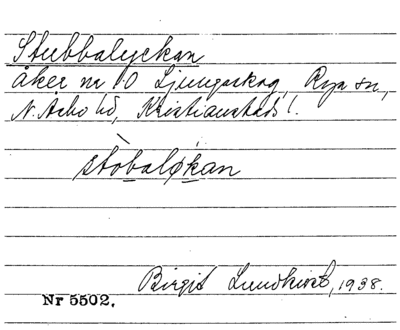 Stubbalyckan
åker nr 10 Ljungaskog, Rya sn,
N. Åsbo hd, Kristianstads l.
stòbaløkan
Birgit Lundkvist, 1938.
Nr 5502.